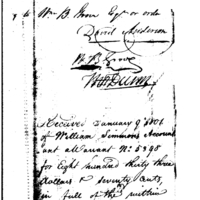 Wm B. Grove Esqr or order
David Anderson
W B Grove
Received January 9 1801
of William Simmons Accountant
and a Warrant No 5898
for Eight hundred thirty three
dollars & seventy Cents
in full of the within